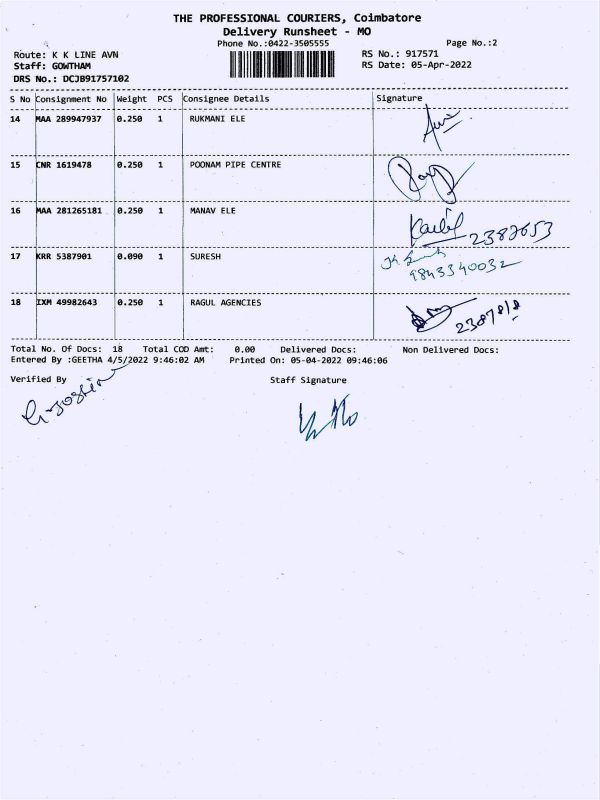 THE PROFESSIONAL COURIERS, Coimbatore
Delivery Runsheet - MO
Phone No.:0422-3505555 Page No.:2
Route: K K LINE AVN RS No.: 917571
Staff: GOWTHAM RS Date: 05-Apr-2022
DRS No.: DCJB91757102
S No Consignment No Weight PCS Consignee Details Signature
14 MAA 289947937 0.250 1 RUKMANI ELE
15 CNR 1619478 0.250 1 POONAM PIPE CENTRE
16 MAA 281265181 0.250 1 MANAV ELE
2387653
17 KRR 5387901 0.090 1 SURESH
9843340032
18 IXM 49982643 0.250 1 RAGUL AGENCIES
Total No. Of Docs: 18 Total COD Amt: 0.00 Delivered Docs: Non Delivered Docs:
Entered By :GEETHA 4/5/2022 9:46:02 AM Printed On: 05-04-2022 09:46:06
Verified By Staff Signature